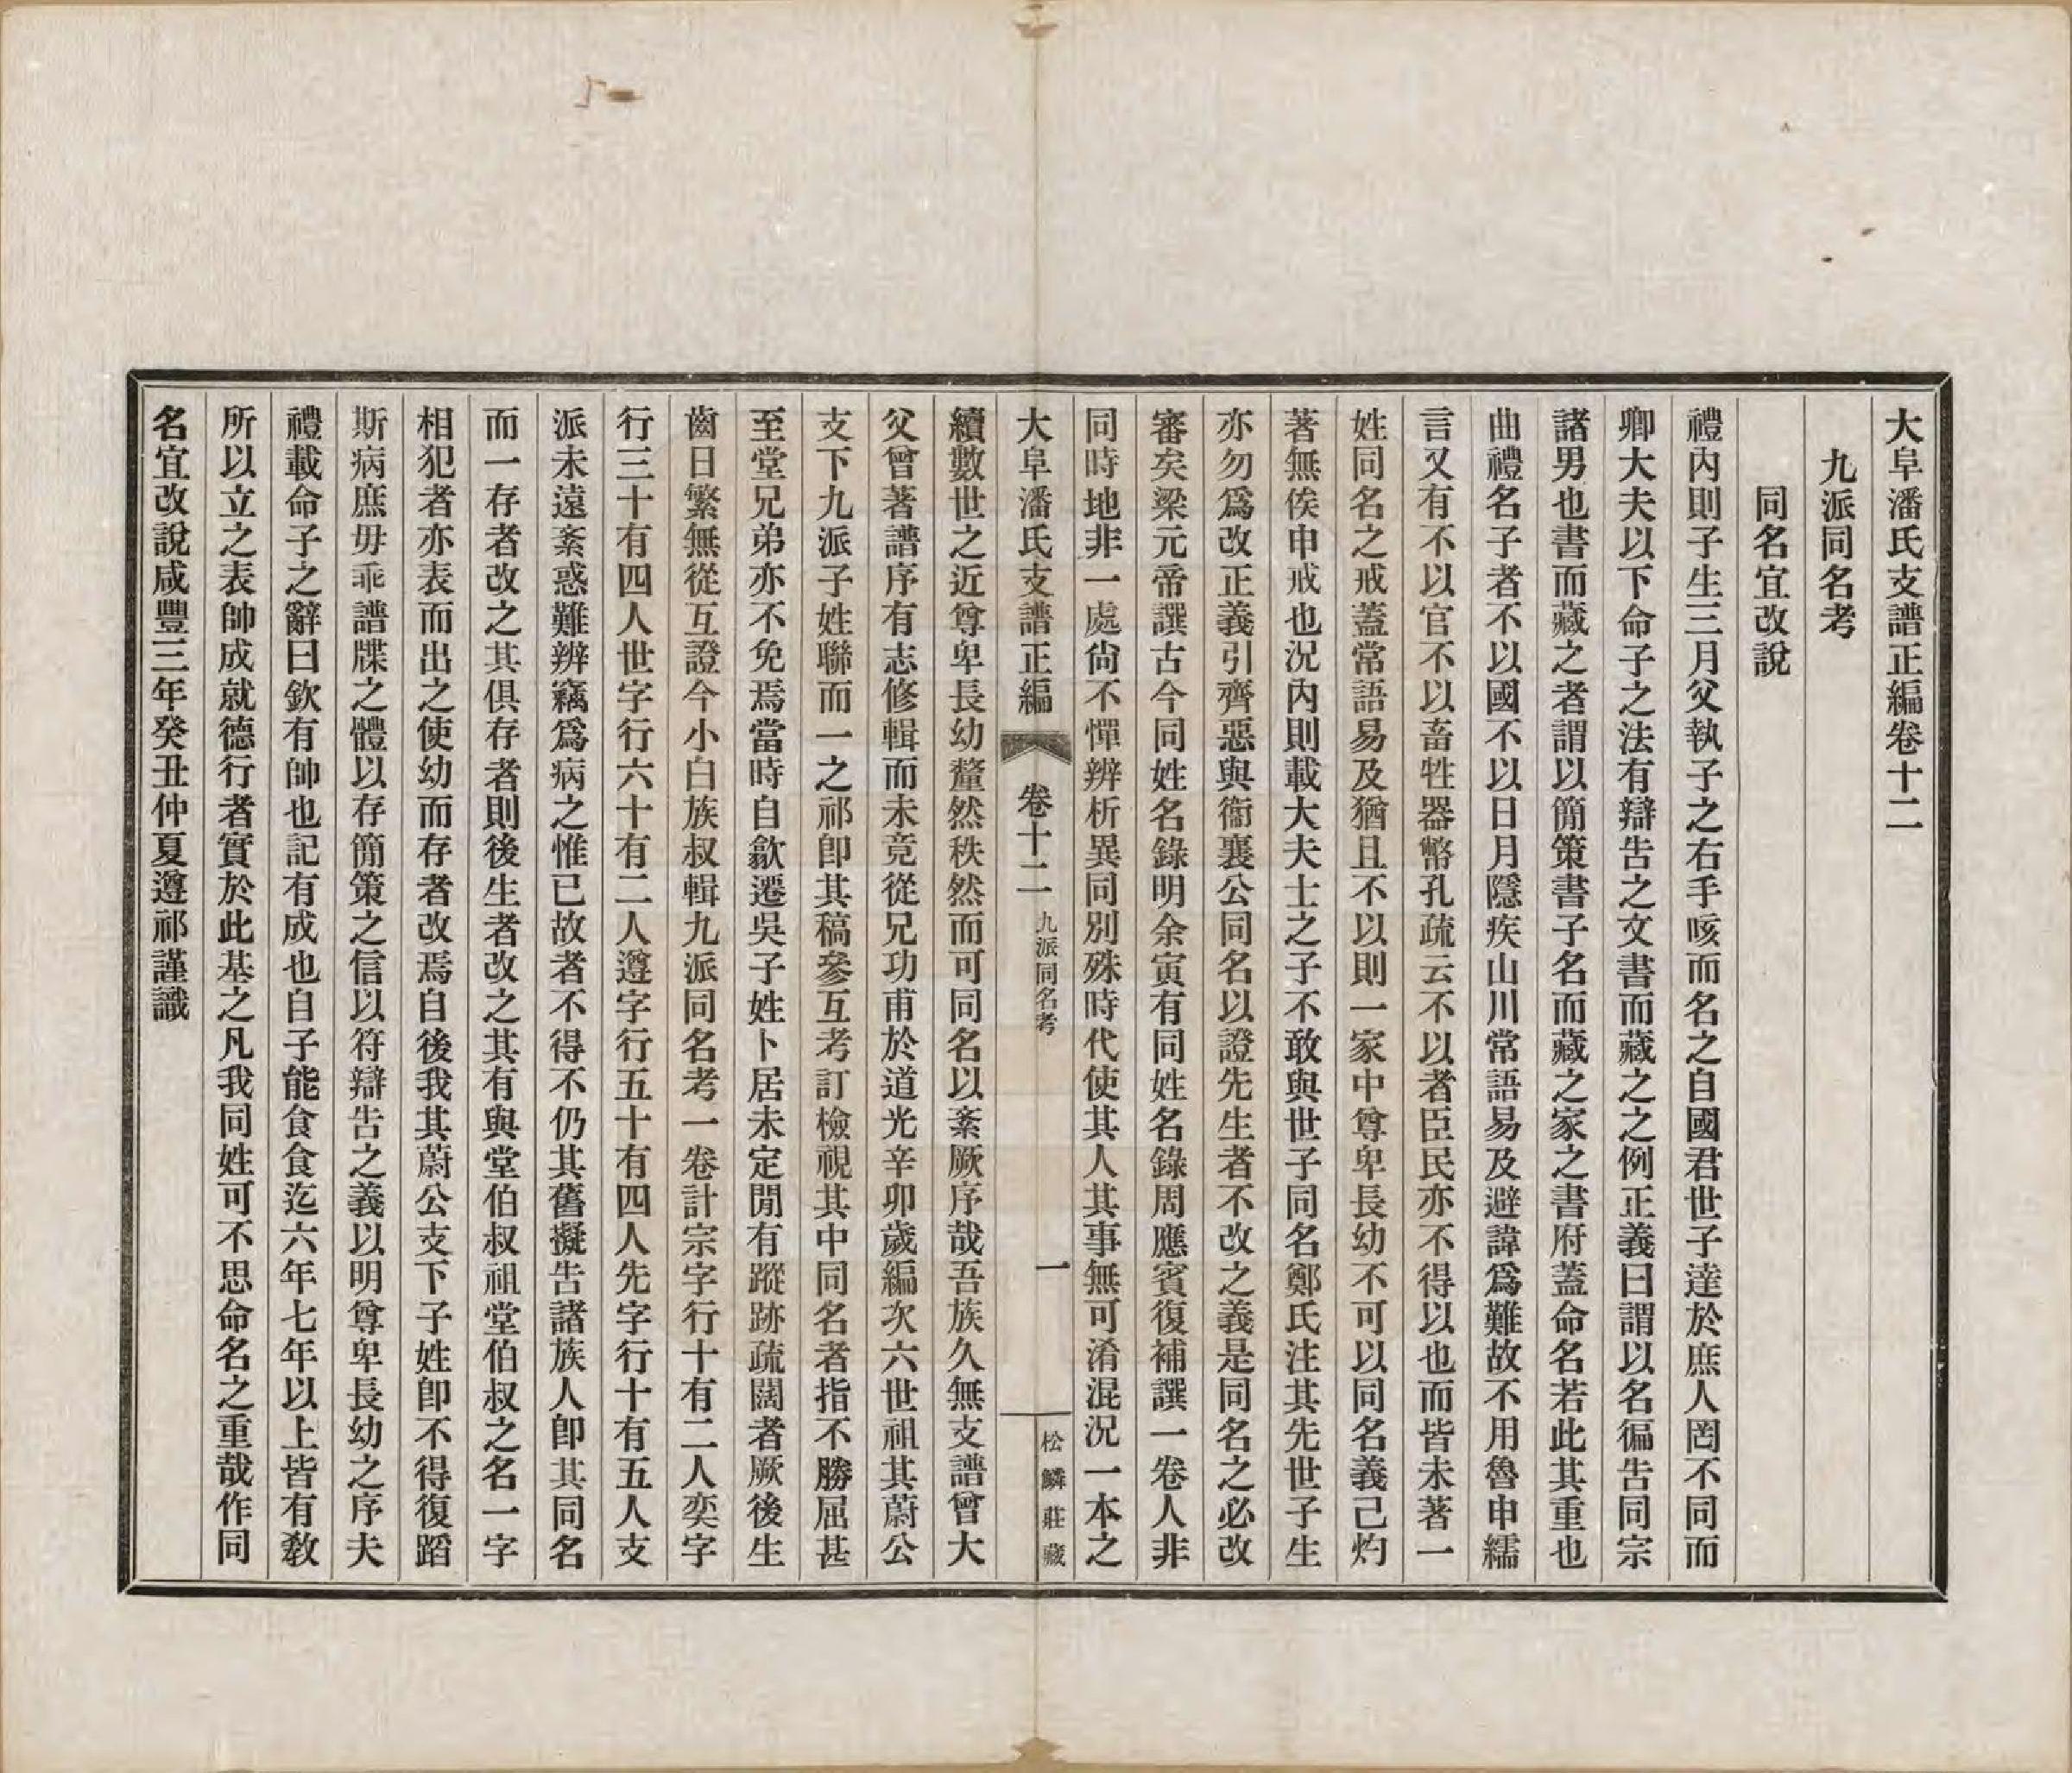 大阜潘氏支譜正編卷十二
九派同名考
同名宜改說
禮內則子生三月父執子之右手咳而名之自國君世子達於庶人罔不同而
卿大夫以下命子之法有辯告之文書而藏之之例正義曰謂以名徧告同宗
諸男也書而藏之者謂以簡策書子名而藏之家之書府蓋命名若此其重也
曲禮名子者不以國不以日月隱疾山川常語易及避諱爲難故不用魯申繻
言又有不以官不以畜牲器幣孔疏云不以者臣民亦不得以也而皆未著一
姓同名之戒蓋常語易及猶且不以則一家中尊卑長幼不可以同名義己灼
著無俟申戒也況內則載大夫士之子不敢與世子同名鄭氏注其先世子生
亦勿爲改正義引齊惡與衞襄公同名以證先生者不改之義是同名之必改
審矣梁元帝譔古今同姓名錄明余寅有同姓名錄周應賓復補譔一卷人非
同時地非一處尙不憚辨析異同別殊時代使其人其事無可淆混況一本之
大阜潘氏支譜正編 卷十二 九派同名考 一 松鱗莊藏
續數世之近尊卑長幼釐然秩然而可同名以紊厥序哉吾族久無支譜曾大
父曾著譜序有志修輯而未竟從兄功甫於道光辛卯歲編次六世祖其蔚公
支下九派子姓聯而一之祁卽其稿參互考訂檢視其中同名者指不勝屈甚
至堂兄弟亦不免焉當時自歙遷吳子姓卜居未定閒有蹤跡疏闊者厥後生
齒日繁無從互證今小白族叔輯九派同名考一卷計宗字行十有二人奕字
行三十有四人世字行六十有二人遵字行五十有四人先字行十有五人支
派未遠紊惑難辨竊爲病之惟已故者不得不仍其舊擬告諸族人卽其同名
而一存者改之其俱存者則後生者改之其有與堂伯叔祖堂伯叔之名一字
相犯者亦表而出之使幼而存者改焉自後我其蔚公支下子姓卽不得復蹈
斯病庶毋乖譜牒之體以存簡策之信以符辯告之義以明尊卑長幼之序夫
禮載命子之辭曰欽有帥也記有成也自子能食食迄六年七年以上皆有敎
所以立之表帥成就德行者實於此基之凡我同姓可不思命名之重哉作同
名宜改說咸豐三年癸丑仲夏遵祁謹識